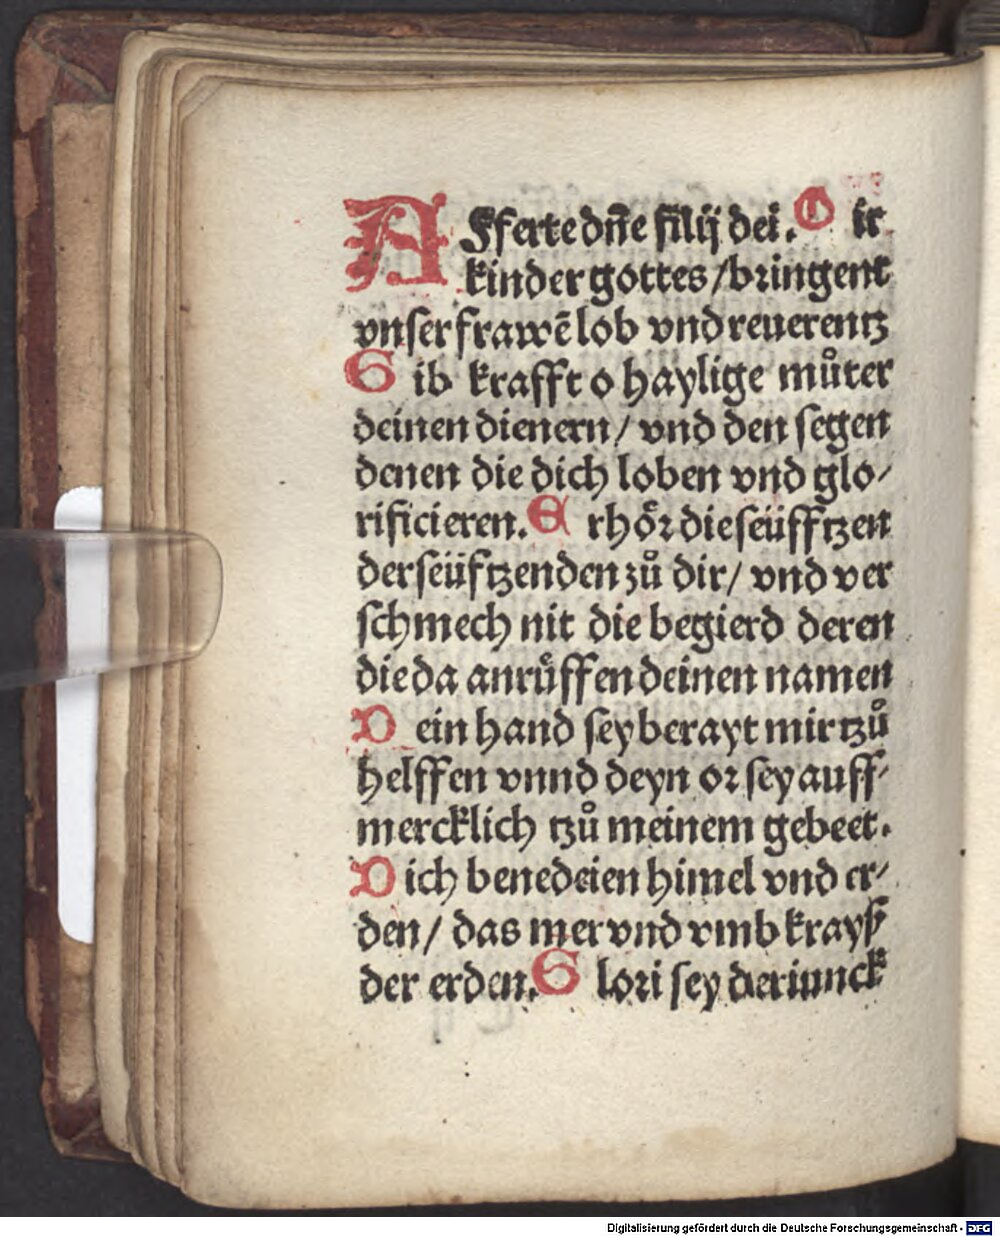 AFferte dñe filij dei. O ir
kinder gottes / bringent
vnser frawē lob vnd reuerentz
Gib krafft o haylige muͦter
deinen dienern / vnd den segen
denen die dich loben vnd glo⸗
rificieren. Erhoͤr die seüfftzen
der seüftzenden zuͦ dir / vnd ver
schmech nit die begierd deren
die da anruͤffen deinen namen
Dein hand sey berayt mir tzuͦ
helffen vnnd deyn or sey auff⸗
mercklich tzuͦ meinem gebeet.
Dich benedeien himel vnd er⸗
den / das mer vnd vmbkrayß
der erden. Glori sey der iunck
Digitalisierung gefördert durch die Deutsche Forschungsgemeinschaft - DFG